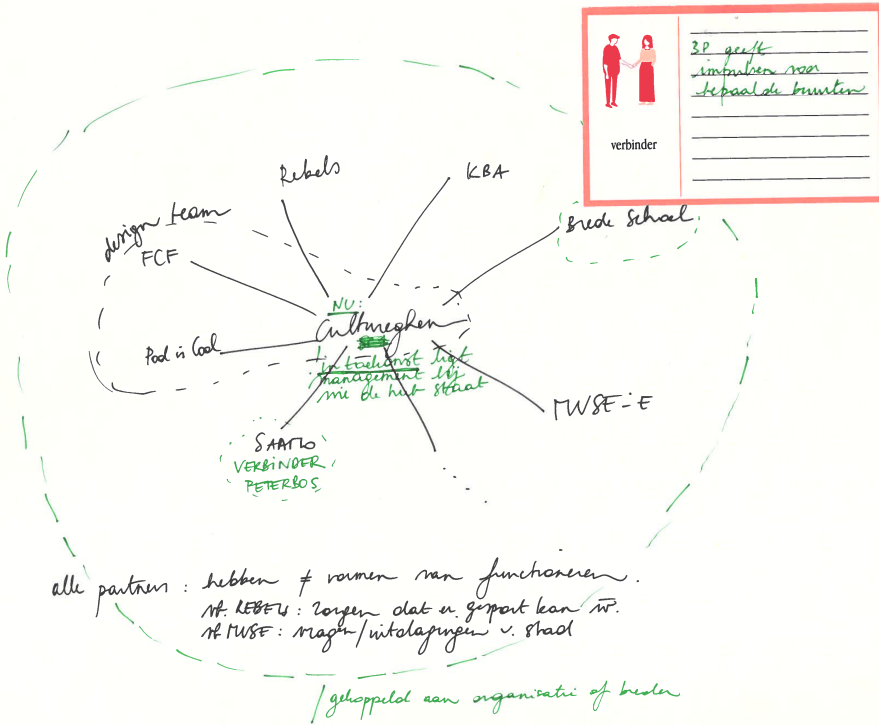 3P geeft
impulsen voor
bepaalde buurten
verbinder
Rebels
KBA
Brede School
design team
FCF
NU:
Cultureghem
Pool is Cool
in toekomst ligt
management bij
wie de hub staat
MUSE-E
SAAMO
VERBINDER
PETERBOS
alle partners : hebben ≠ vormen van functioneren.
REBELS : zorgen dat er gesport kan w.
MUSE : vragen/uitdagingen v. stad
/ gekoppeld aan organisatie of breder